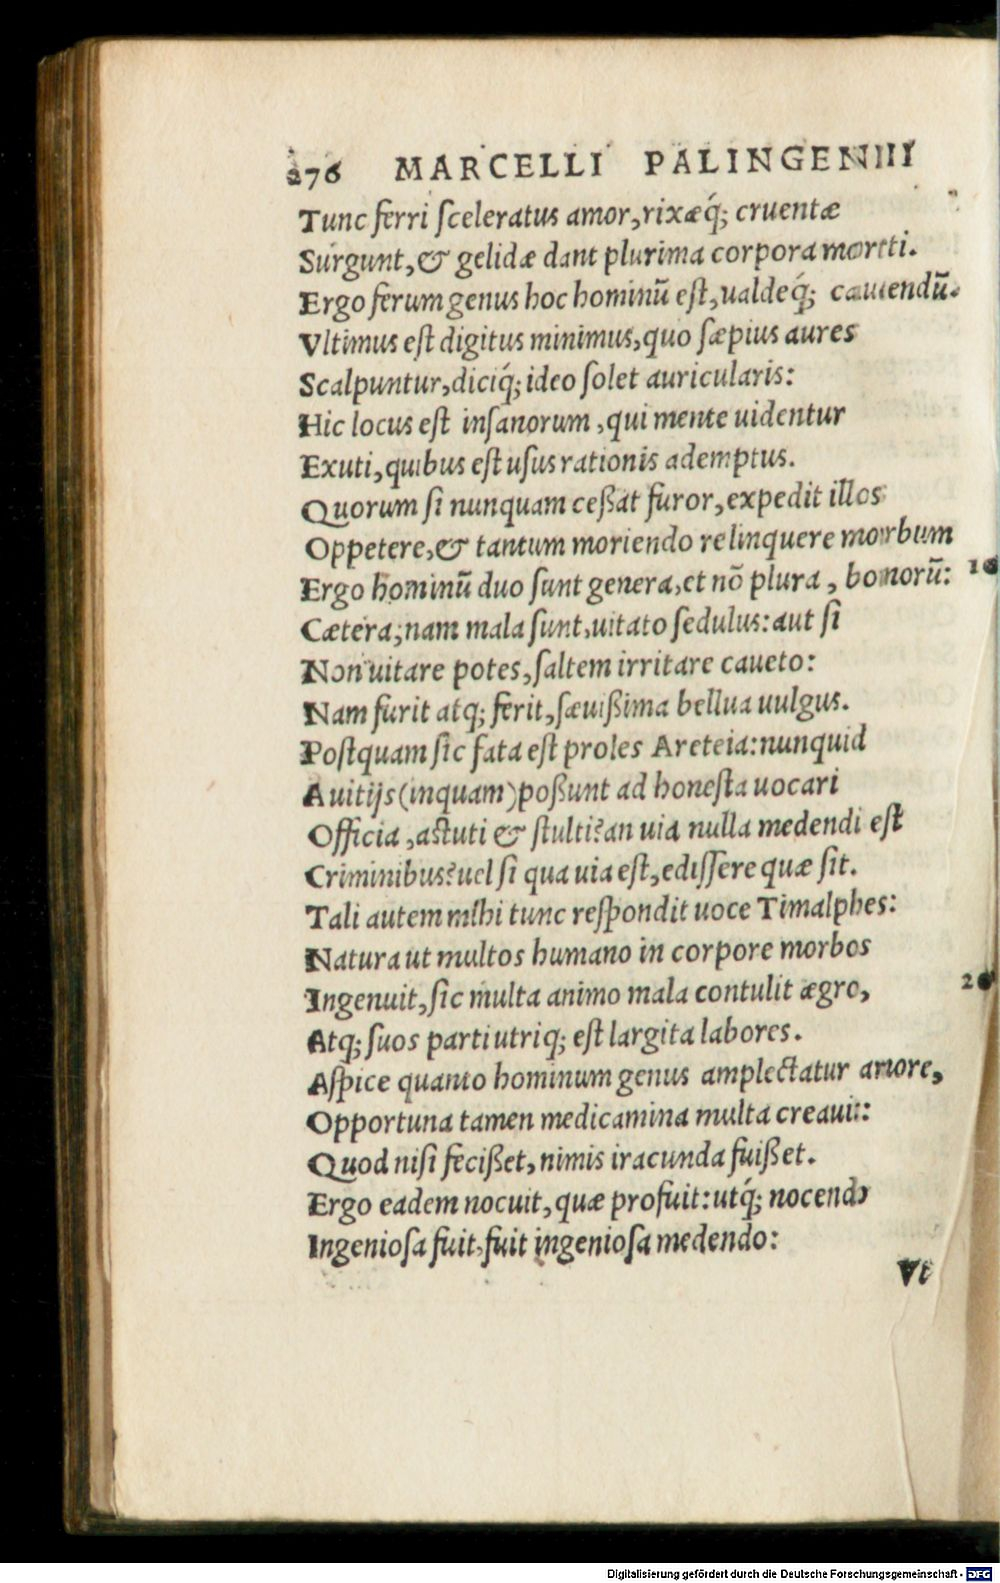 276 MARCELLI PALINGENIII
Tunc ferri ſceleratus amor,rixæq́; cruentæ
Surgunt,& gelidæ dant plurima corpora morti.
Ergo ferum genus hoc hominū eſt,ualdeq́; cauendū.
Vltimus eſt digitus minimus,quo ſæpius aures
Scalpuntur,diciq́; ideo ſolet auricularis:
Hic locus eſt inſanorum ,qui mente uidentur
Exuti,quibus eſt uſus rationis ademptus.
Quorum ſi nunquam ceßat furor,expedit illos
Oppetere,& tantum moriendo relinquere morbum
Ergo hominū duo ſunt genera,et nō plura , bonorū: 10
Cætera;nam mala ſunt,uitato ſedulus:aut ſi
Non uitare potes,ſaltem irritare caueto:
Nam furit atq; ferit,ſæuißima bellua uulgus.
Poſtquam ſic fata eſt proles Areteia:nunquid
A uitijs(inquam)poßunt ad honeſta uocari
Officia ,aſtuti & ſtulti?an uia nulla medendi eſt
Criminibus?uel ſi qua uia eſt,ediſſere quæ ſit.
Tali autem mihi tunc reſpondit uoce Timalphes:
Natura ut multos humano in corpore morbos
Ingenuit,ſic multa animo mala contulit ægro, 20
Atq; ſuos parti utriq; eſt largita labores.
Aſpice quanto hominum genus amplectatur amore,
Opportuna tamen medicamina multa creauit:
Quod niſi fecißet,nimis iracunda fuißet.
Ergo eadem nocuit,quæ profuit:utq́; nocendo
Ingenioſa fuit,fuit ingenioſa medendo:
Vt
Digitalisierung gefördert durch die Deutsche Forschungsgemeinschaft - DFG